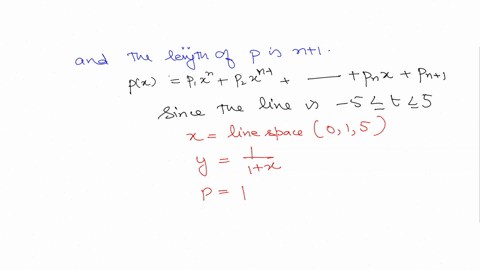 and the length of p is n+1.
p(x) = p₁xⁿ + p₂xⁿ⁻¹ + —— + pₙx + pₙ₊₁
Since the line is -5 ≤ t ≤ 5
x = line space (0,1,5)
y = 1/(1+x)
P = 1